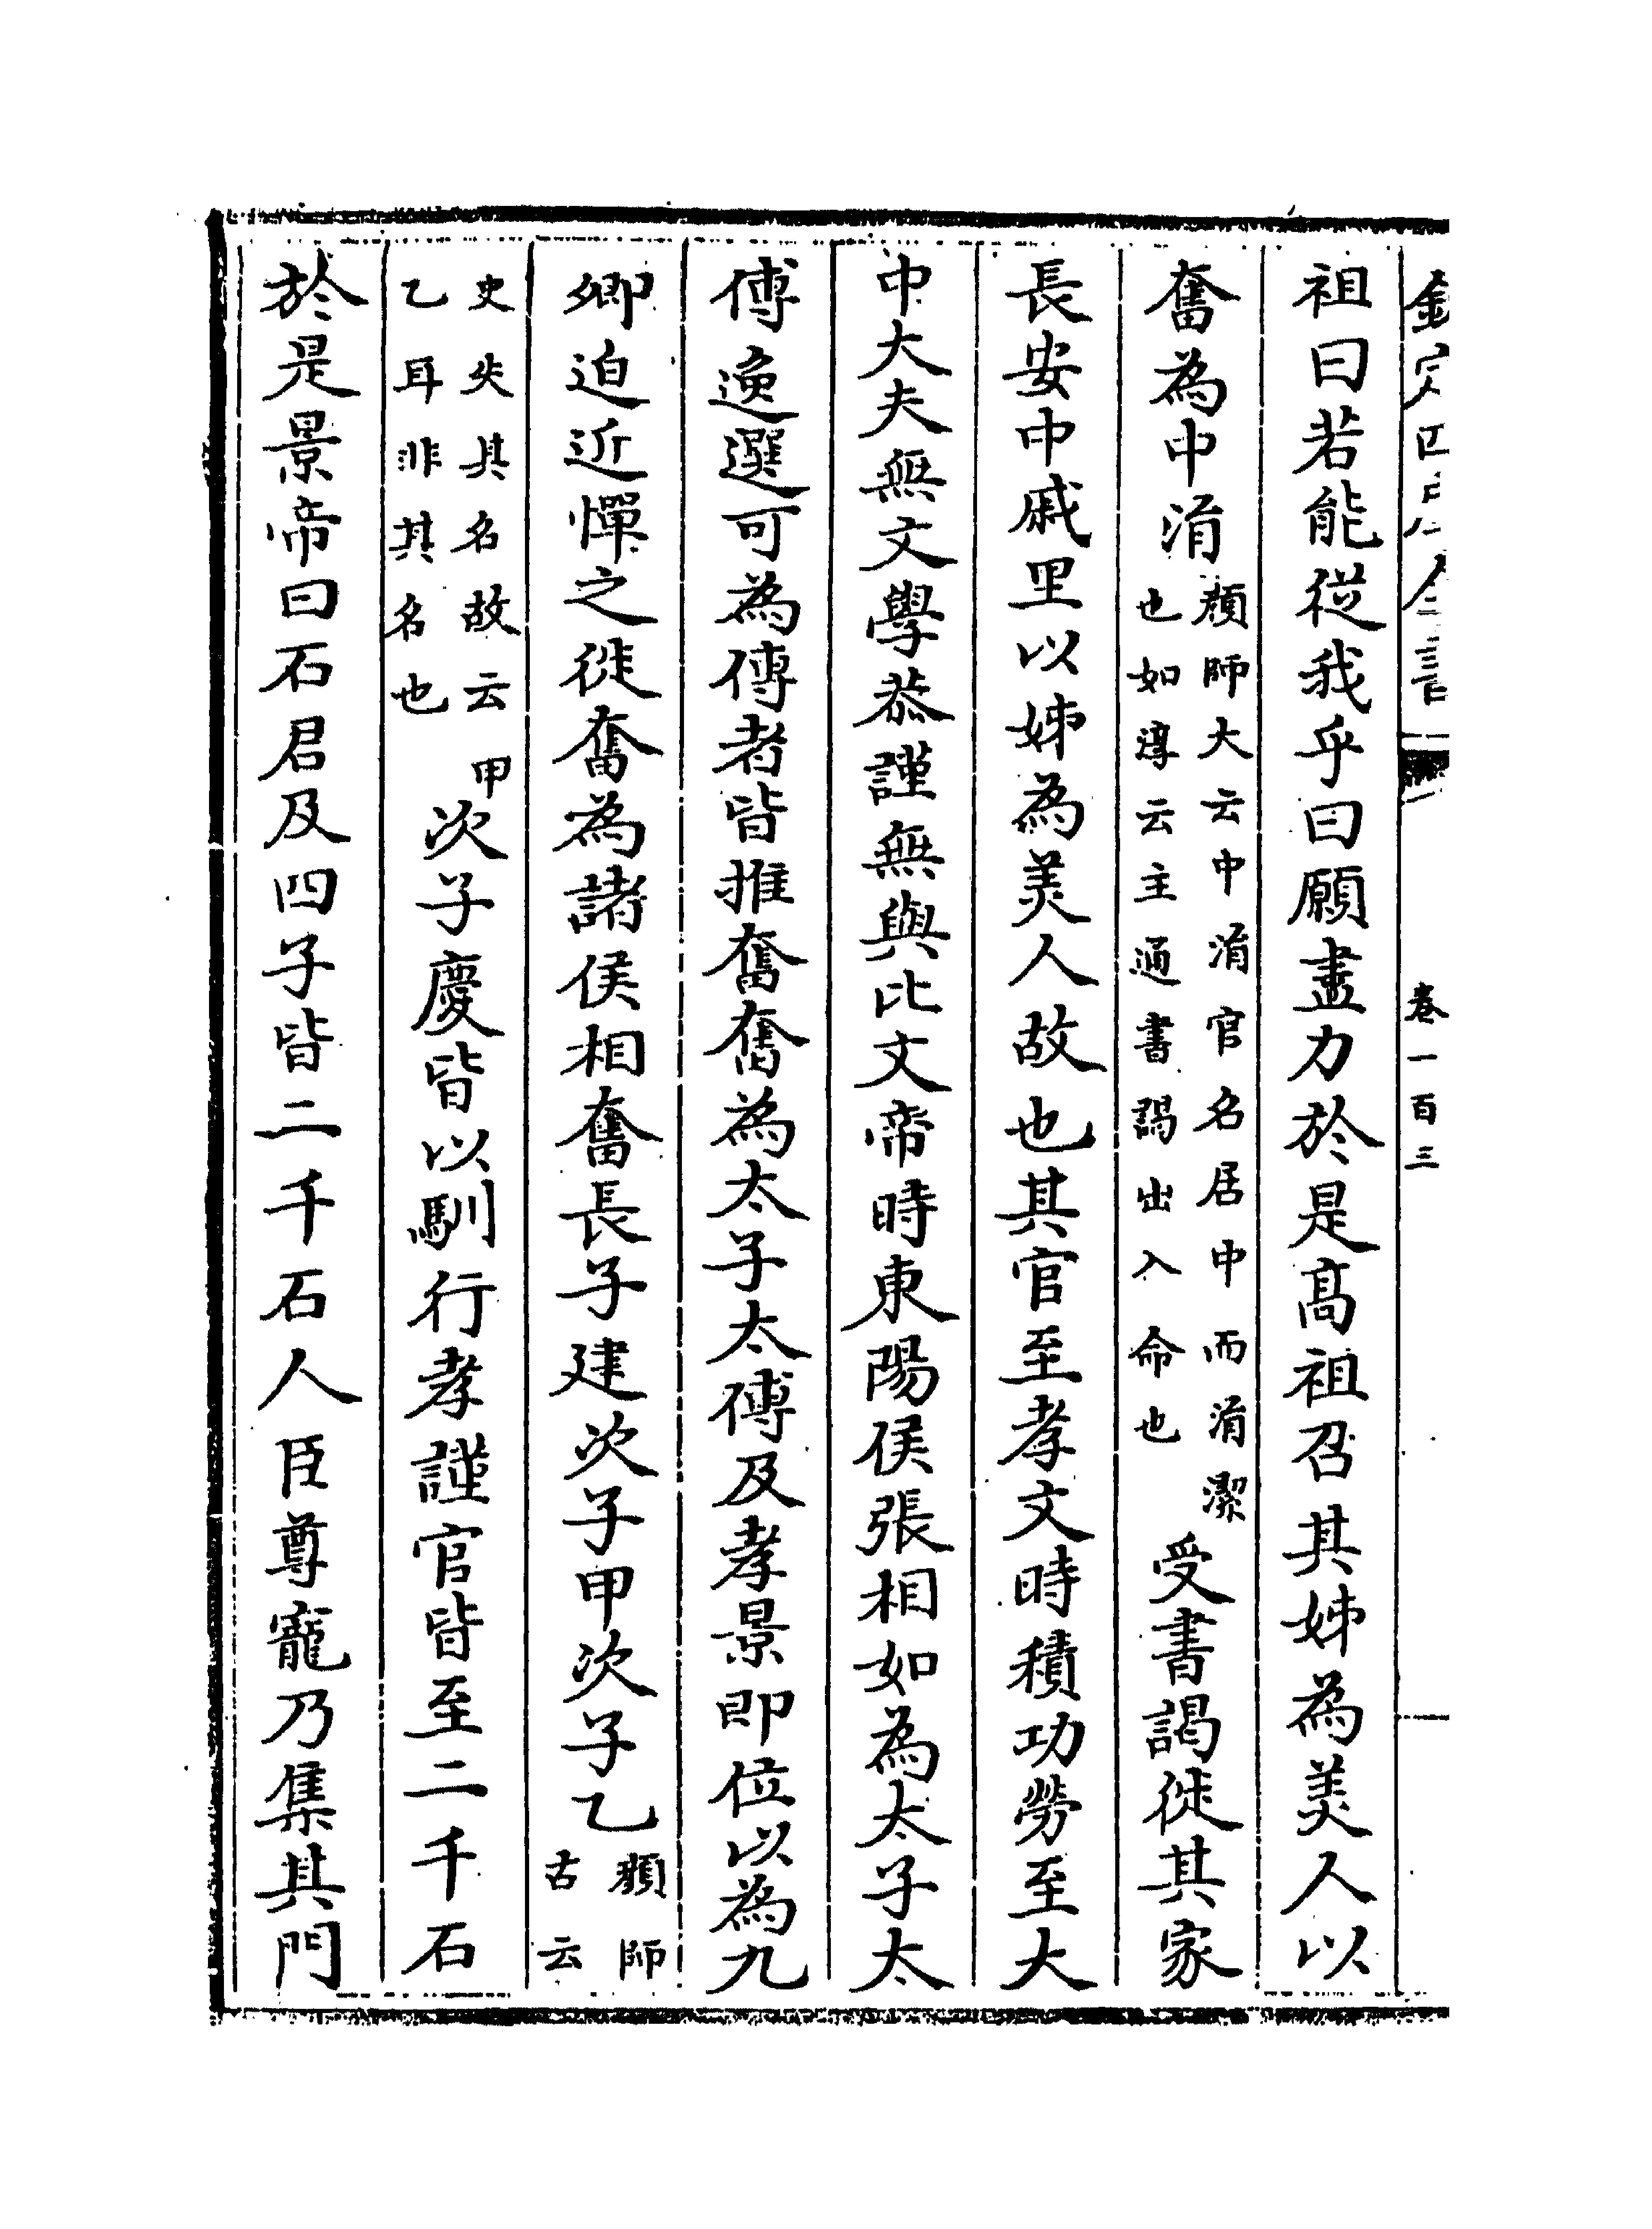 欽定四庫全書
卷一百三
祖曰若能從我乎曰願盡力於是髙祖召其姊為美人以
奮為中涓
顔師大云中涓官名居中而涓潔
也如淳云主通書謁出入命也
受書謁徙其家
長安中戚里以姊為美人故也其官至孝文時積功勞至大
中大夫無文學恭謹無與比文帝時東陽侯張相如為太子太
傅逸選可為傅者皆推奮奮為太子太傅及孝景即位以為九
卿迫近憚之徙奮為諸侯相奮長子建次子甲次子乙
顔師
古云
史失其名故云甲
乙耳非其名也
次子慶皆以馴行孝謹官皆至二千石
於是景帝曰石君及四子皆二千石人臣尊寵乃集其門